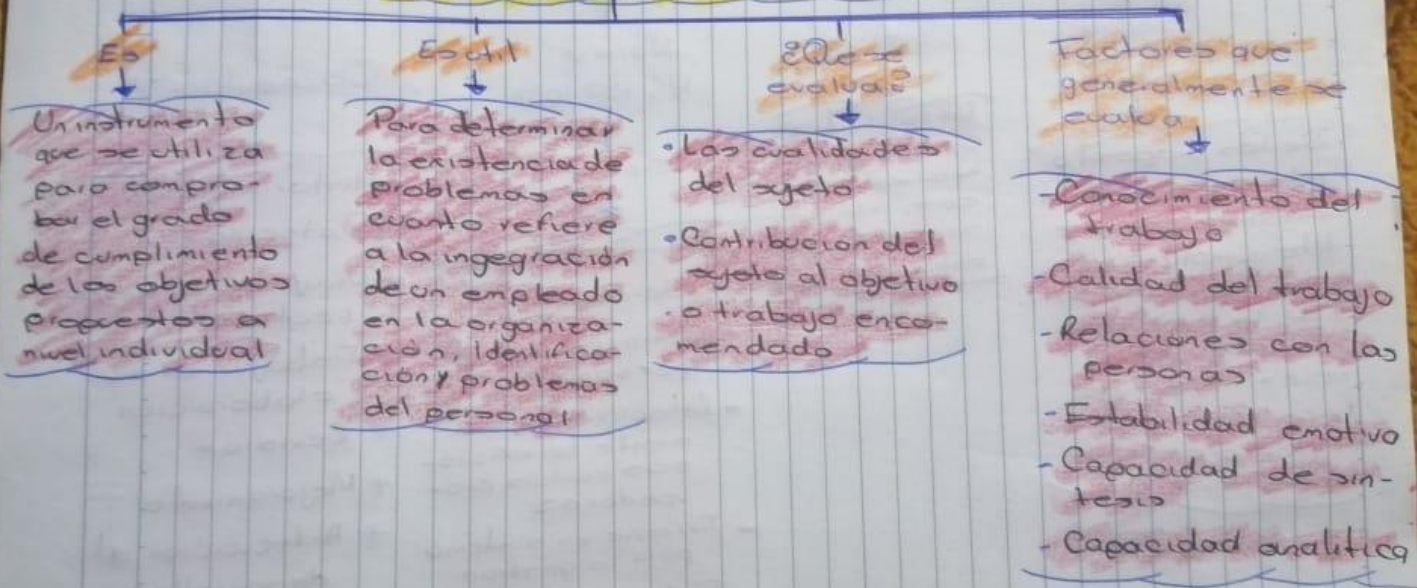 Es
Un instrumento
que se utiliza
para compro-
bar el grado
de cumplimiento
de los objetivos
propuestos a
nivel individual
Es util
Para determinar
la existencia de
problemas en
cuanto refiere
a la ingegración
de un empleado
en la organiza-
ción, Identifica-
ción y problemas
del personal
¿Que se
evalua?
• Las cualidades
del sujeto
• Contribucion del
sujeto al objetivo
o trabajo enco-
mendado
Factores que
generalmente se
evalua
- Conocimiento del
trabajo
- Calidad del trabajo
- Relaciones con las
personas
- Estabilidad emotiva
- Capacidad de sin-
tesis
- Capacidad analitica